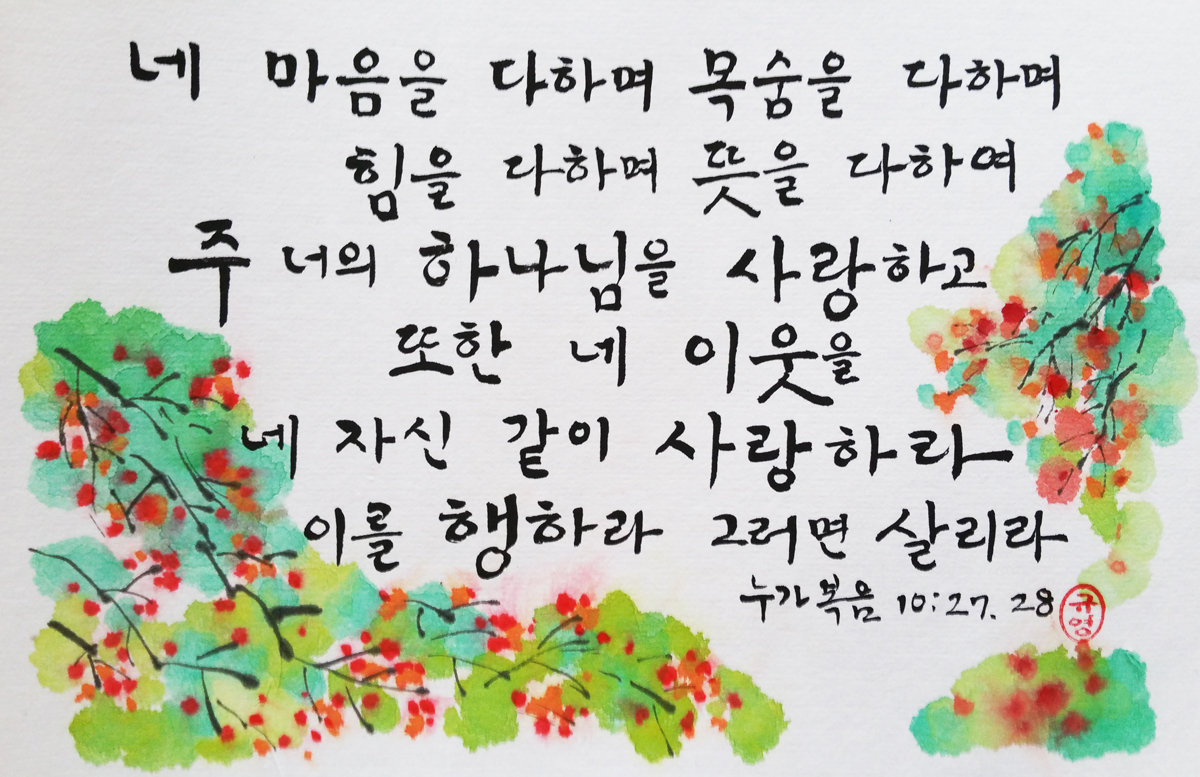 네 마음을 다하며 목숨을 다하며
힘을 다하며 뜻을 다하여
주 너의 하나님을 사랑하고
또한 네 이웃을
네 자신 같이 사랑하라
이를 행하라 그러면 살리라
누가복음 10:27. 28
규영